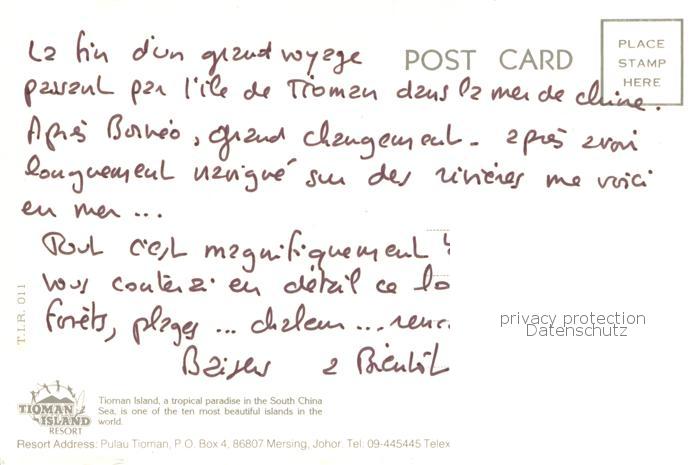 La fin d'un grand voyage
POST CARD
PLACE
STAMP
HERE
passant par l'île de Tioman dans la mer de chine.
Après Bornéo, grand changement - après avoir
longuement navigué sur des rivières me voici
en mer ...
Tout c'est magnifiquement
vous conterai en détail ce lo
Forêts, plages ... chaleur ... renc
Baisers a Bientôt
T.I.R. 011
privacy protection
Datenschutz
TIOMAN
ISLAND
RESORT
Tioman Island, a tropical paradise in the South China
Sea, is one of the ten most beautiful islands in the
world.
Resort Address: Pulau Tioman, P.O. Box 4, 86807 Mersing, Johor. Tel: 09-445445 Telex